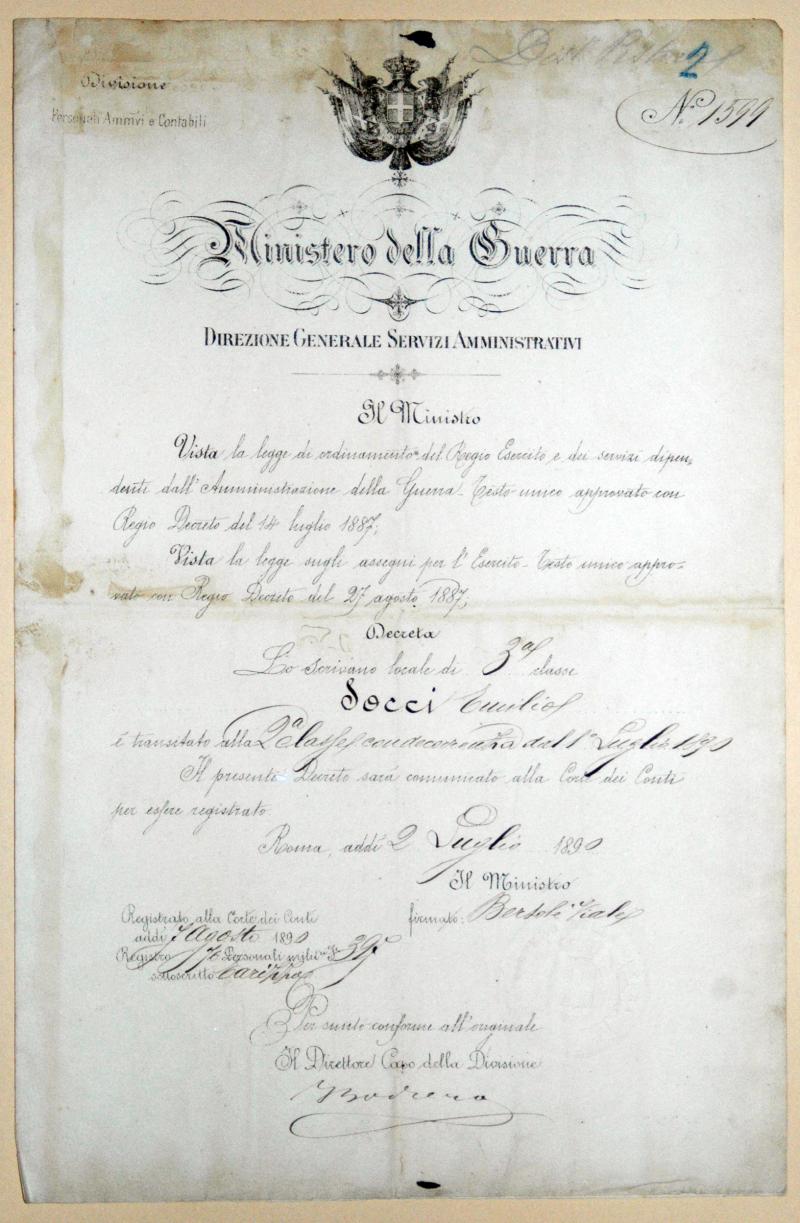 Divisione
Personali Ammivi e Contabili
Dist
2
N.° 1599
Ministero della Guerra
DIREZIONE GENERALE SERVIZI AMMINISTRATIVI
Il Ministro
Vista la legge di ordinamento del Regio Esercito e dei servizi dipen-
denti dall'Amministrazione della Guerra - Testo unico approvato con
Regio Decreto del 14 luglio 1887;
Vista la legge sugli assegni per l'Esercito - Testo unico appro-
vato con Regio Decreto del 27 agosto 1887;
Decreta
Lo scrivano locale di 3ª classe
Socci Emilio
è transitato alla 2ª Classe con decorrenza dal 1° Luglio 1890
Il presente Decreto sarà comunicato alla Corte dei Conti
per essere registrato.
Roma, addì 2 Luglio 1890
Il Ministro
firmato: Bertolè Viale
Registrato alla Corte dei Conti
addì 7 Agosto 1890
Registro Personali
sottoscritto
Per sunto conforme all'originale
Il Direttore Capo della Divisione